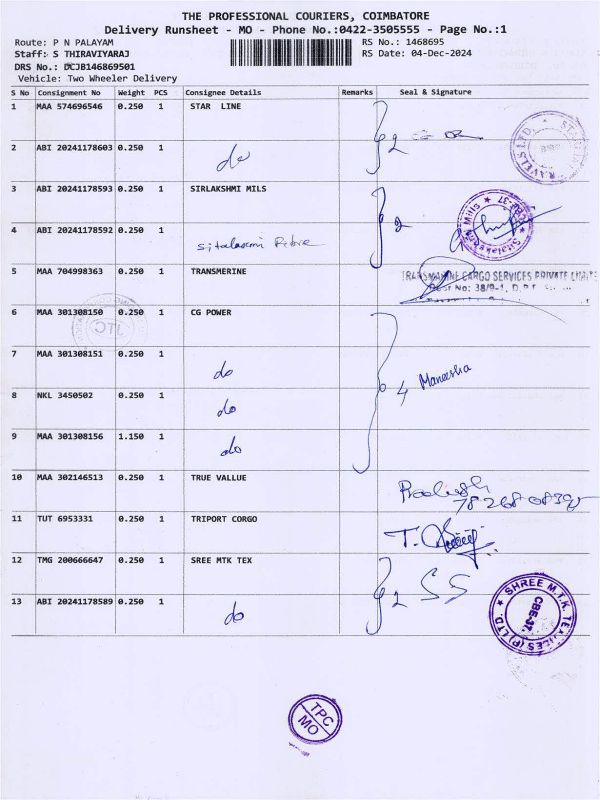 THE PROFESSIONAL COURIERS, COIMBATORE
Delivery Runsheet - MO - Phone No.:0422-3505555 - Page No.:1
Route: P N PALAYAM RS No.: 1468695
Staff: S THIRAVIYARAJ RS Date: 04-Dec-2024
DRS No.: DCJB146869501
Vehicle: Two Wheeler Delivery
S No Consignment No Weight PCS Consignee Details Remarks Seal & Signature
1 MAA 574696546 0.250 1 STAR LINE
2 ABI 20241178603 0.250 1 do 2
3 ABI 20241178593 0.250 1 SIRLAKSHMI MILS
4 ABI 20241178592 0.250 1 2
5 MAA 704998363 0.250 1 TRANSMERINE TRANSMARINE CARGO SERVICES PRIVATE LIMITE
No: 38/9-1, D.P.F
6 MAA 301308150 0.250 1 CG POWER
7 MAA 301308151 0.250 1 do 4 Maneesha
8 NKL 3450502 0.250 1 do
9 MAA 301308156 1.150 1 do
10 MAA 302146513 0.250 1 TRUE VALLUE
11 TUT 6953331 0.250 1 TRIPORT CORGO
12 TMG 200666647 0.250 1 SREE MTK TEX
13 ABI 20241178589 0.250 1 do 2 SS
SHREE M.T.K. TEXTILES (P) LTD.
CBE-37.
TPC
MO